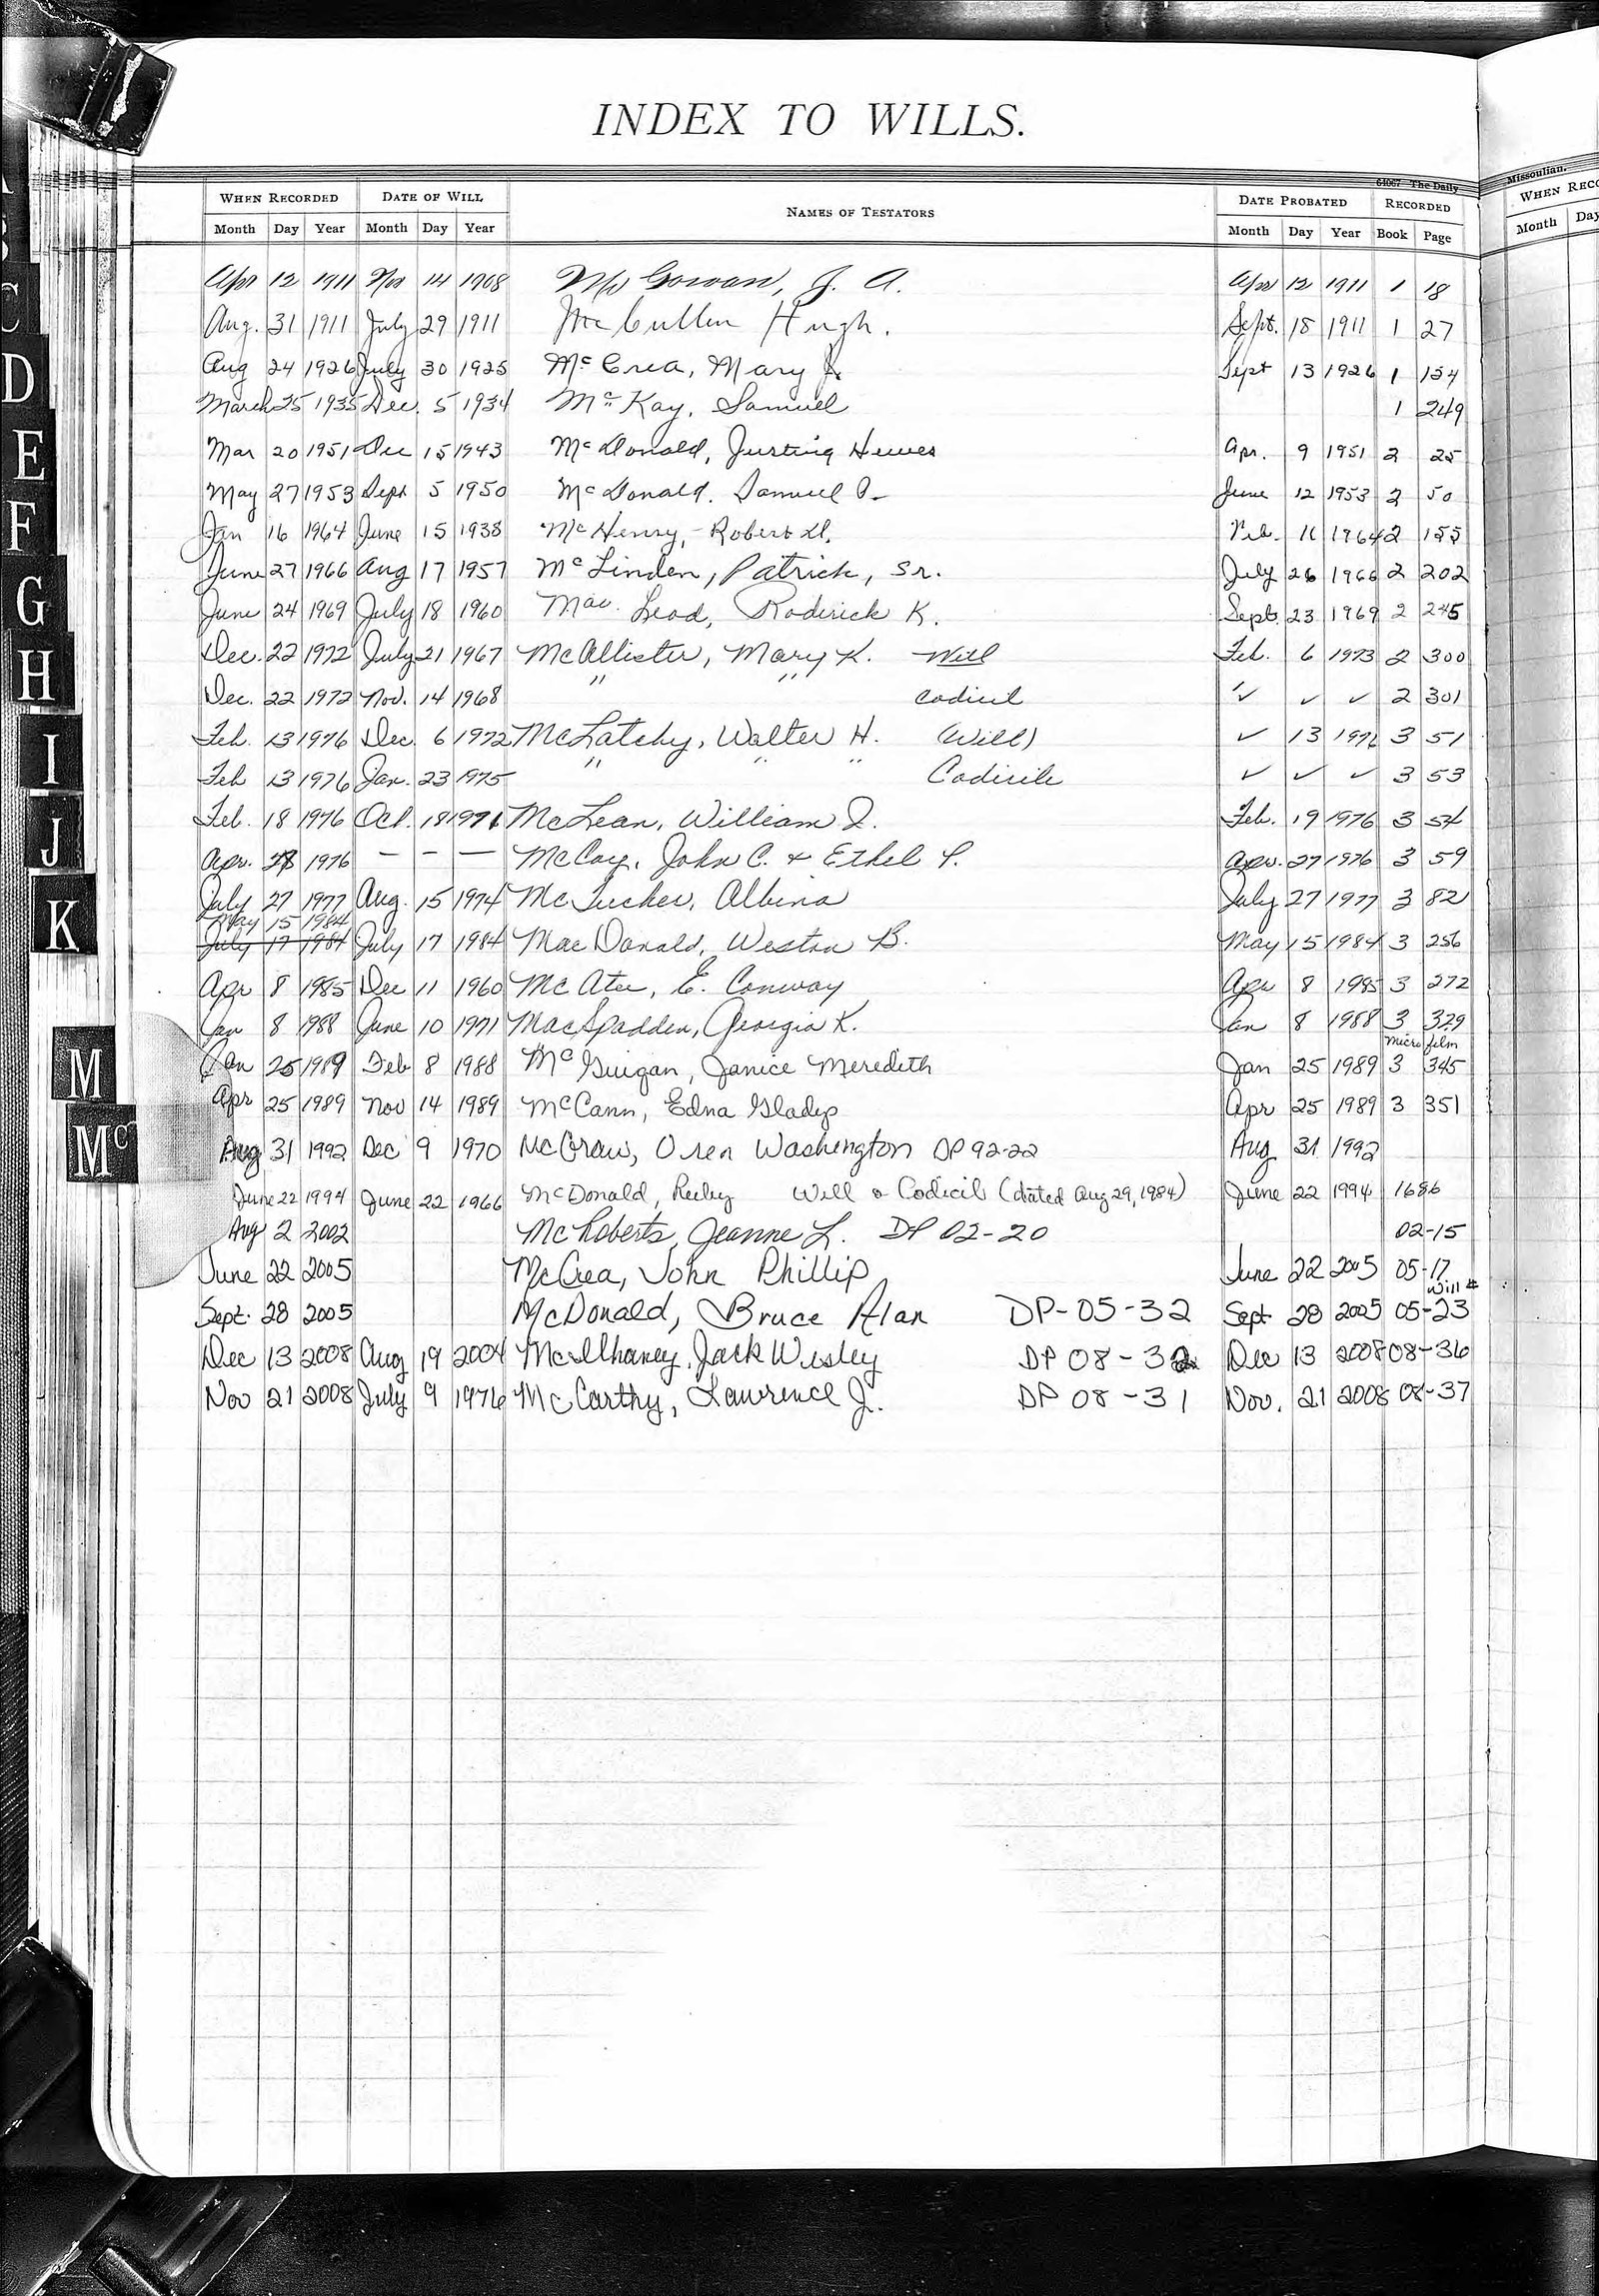 INDEX TO WILLS.
64067 The Daily Missoulian.
WHEN RECORDED DATE OF WILL NAMES OF TESTATORS DATE PROBATED RECORDED WHEN RECO
Month Day Year Month Day Year Month Day Year Book Page Month Day
Apr 12 1911 Nov 14 1908 McGowan, J. A. Apr 12 1911 1 18
Aug. 31 1911 July 29 1911 McCullen Hugh. Sept. 18 1911 1 27
Aug 24 1926 July 30 1925 McCrea, Mary J. Sept 13 1926 1 154
March 25 1935 Dec. 5 1934 McKay, Samuel 1 249
Mar 20 1951 Dec 15 1943 McDonald, Justina Hewes Apr. 9 1951 2 25
May 27 1953 Sept 5 1950 McDonald, Samuel June 12 1953 2 50
Jan 16 1964 June 15 1938 McHenry, Robert Feb. 11 1964 2 155
June 27 1966 Aug 17 1957 McLinden, Patrick, Sr. July 26 1966 2 202
June 24 1969 July 18 1960 Mac Leod, Roderick K. Sept. 23 1969 2 245
Dec. 22 1972 July 21 1967 McAllister, Mary K. Will Feb. 6 1973 2 300
Dec. 22 1972 Nov. 14 1968 " " Codicil ✓ ✓ ✓ 2 301
Feb. 13 1976 Dec. 6 1972 McLatchy, Walter H. (Will) ✓ 13 1976 3 51
Feb 13 1976 Jan. 23 1975 " " " Codicile ✓ ✓ ✓ 3 53
Feb. 18 1976 Oct. 18 1971 McLean, William J. Feb. 19 1976 3 54
Apr. 27 1976 — — — McCoy, John C. & Ethel P. Apr. 27 1976 3 59
July 27 1977 Aug. 15 1974 McTucker, Albina July 27 1977 3 82
May 15 1984
July 17 1984 July 17 1984 MacDonald, Weston B. May 15 1984 3 256
Apr 8 1985 Dec 11 1960 McAtee, E. Conway Apr 8 1985 3 272
Jan 8 1988 June 10 1971 MacSpadden, Georgia K. Jan 8 1988 3 329
Micro film
Jan 25 1989 Feb 8 1988 McGuigan, Janice Meredith Jan 25 1989 3 345
Apr 25 1989 Nov 14 1989 McCann, Edna Gladys Apr 25 1989 3 351
Aug 31 1992 Dec 9 1970 McCraw, Oren Washington DP 92-22 Aug 31 1992
June 22 1994 June 22 1966 McDonald, Ruby Will & Codicil (dated Aug 29, 1984) June 22 1994 1686
Aug 2 2002 McRoberts, Jeanne L. DP 02-20 02-15
June 22 2005 McCrea, John Phillip June 22 2005 05-17
Will #
Sept. 28 2005 McDonald, Bruce Alan DP-05-32 Sept 28 2005 05-23
Dec 13 2008 Aug 19 2004 McIlhaney, Jack Wesley DP 08-32 Dec 13 2008 08-36
Nov 21 2008 July 9 1976 McCarthy, Lawrence J. DP 08-31 Nov. 21 2008 08-37
C
D
E
F
G
H
I
J
K
M
Mc